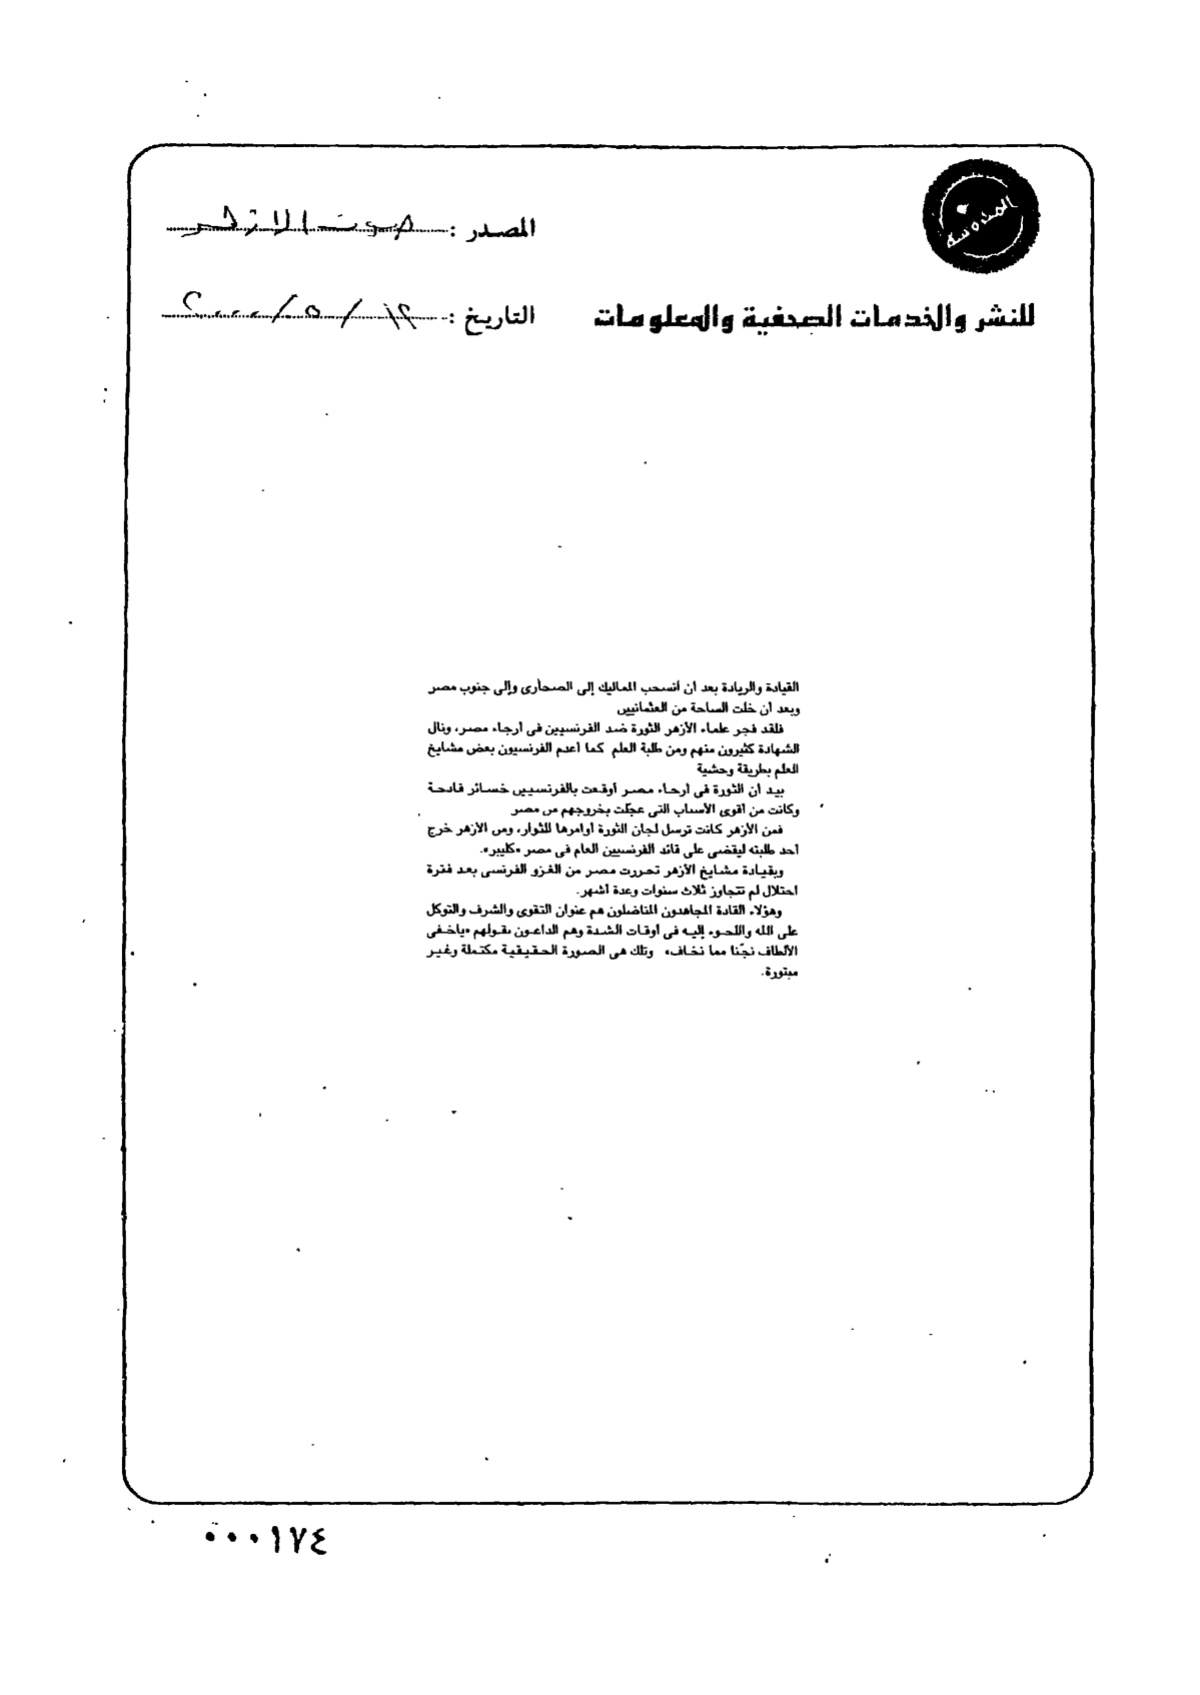 المصدر : صوت الازهر
للنشر والخدمات الصحفية والمعلومات
التاريخ : ١٢ / ٥ / ٢٠٠٠
القيادة والريادة بعد أن انسحب المماليك إلى الصحارى وإلى جنوب مصر
وبعد أن خلت الساحة من العثمانيين
فلقد فجر علماء الأزهر الثورة ضد الفرنسيين فى أرجاء مصر، ونال
الشهادة كثيرون منهم ومن طلبة العلم كما أعدم الفرنسيون بعض مشايخ
العلم بطريقة وحشية
بيد أن الثورة فى أرجاء مصر أوقعت بالفرنسيين خسائر فادحة
وكانت من أقوى الأسباب التى عجلت بخروجهم من مصر
فمن الأزهر كانت ترسل لجان الثورة أوامرها للثوار، ومن الأزهر خرج
أحد طلبته ليقضى على قائد الفرنسيين العام فى مصر «كليبر».
وبقيادة مشايخ الأزهر تحررت مصر من الغزو الفرنسى بعد فترة
احتلال لم تتجاوز ثلاث سنوات وعدة أشهر.
وهؤلاء القادة المجاهدون المناضلون هم عنوان التقوى والشرف والتوكل
على الله واللجوء إليه فى أوقات الشدة وهم الداعون بقولهم «ياخفى
الألطاف نجّنا مما نخاف» وتلك هى الصورة الحقيقية مكتملة وغير
مبتورة.
٠٠٠١٧٤